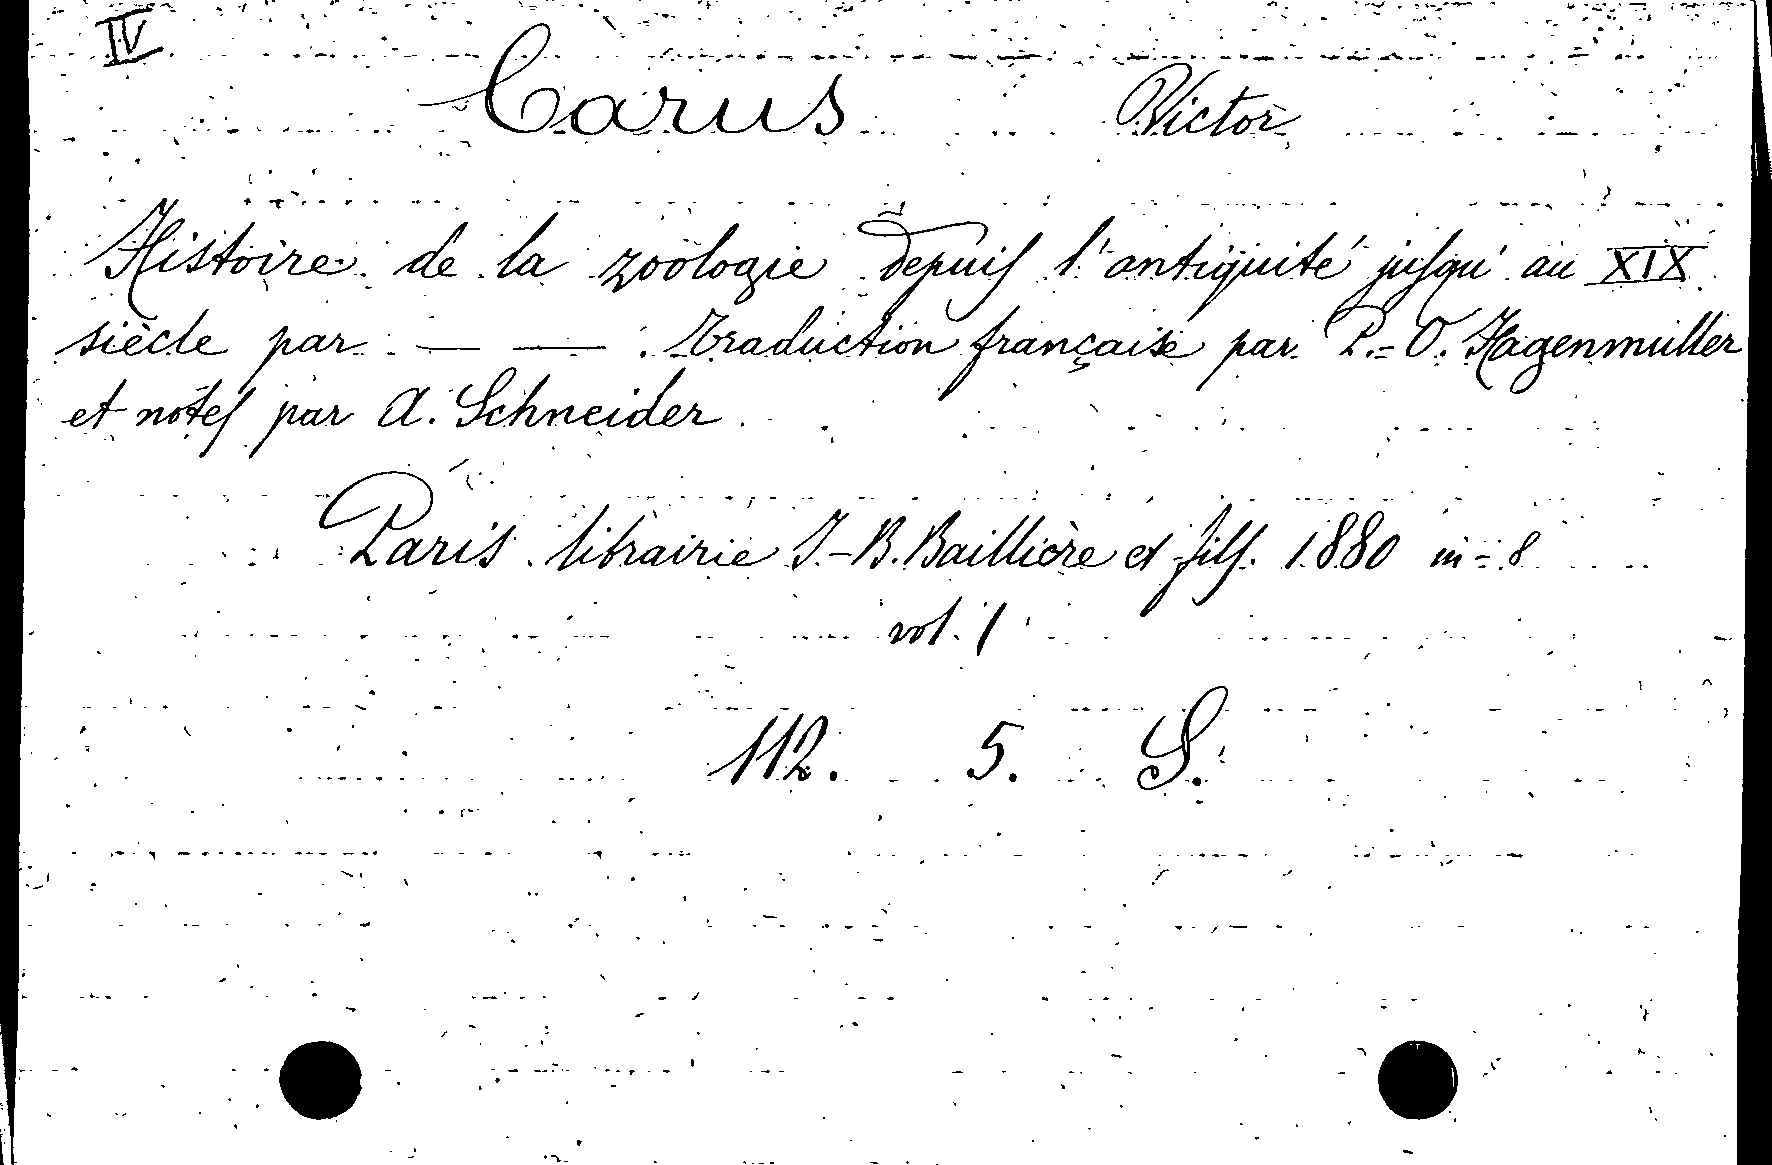 IV
Carus Victor
Histoire de la zoologie depuis l'antiquité jusqu'au XIX
siècle par — — . Traduction française par P.-O. Hagenmuller
et notes par A. Schneider
Paris librairie J.-B. Baillière et fils. 1880 in-8
vol. 1
112. 5. S.